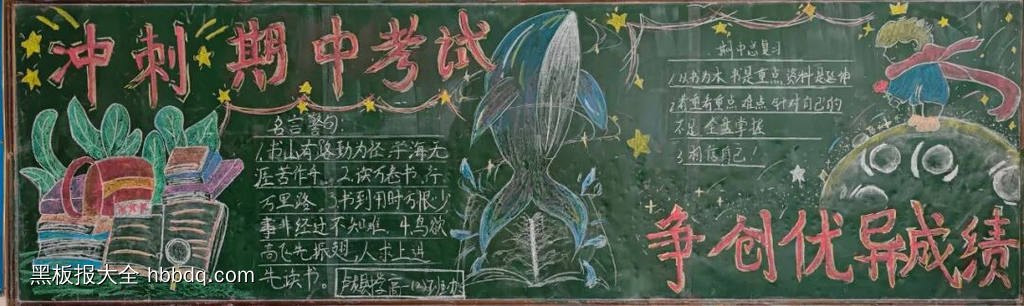 冲刺期中考试
名言警句:
1.书山有路勤为径,学海无
涯苦作舟。2.读万卷书,行
万里路。3.书到用时方恨少
事非经过不知难。4.鸟欲
高飞先振翅,人求上进
先读书。
期中总复习
1.以书为本 书是重点 资料是延伸
2.着重看重点 难点 针对自己的
不足 全盘掌握
3.相信自己!
争创优异成绩
黑板报大全 hbbdq.com